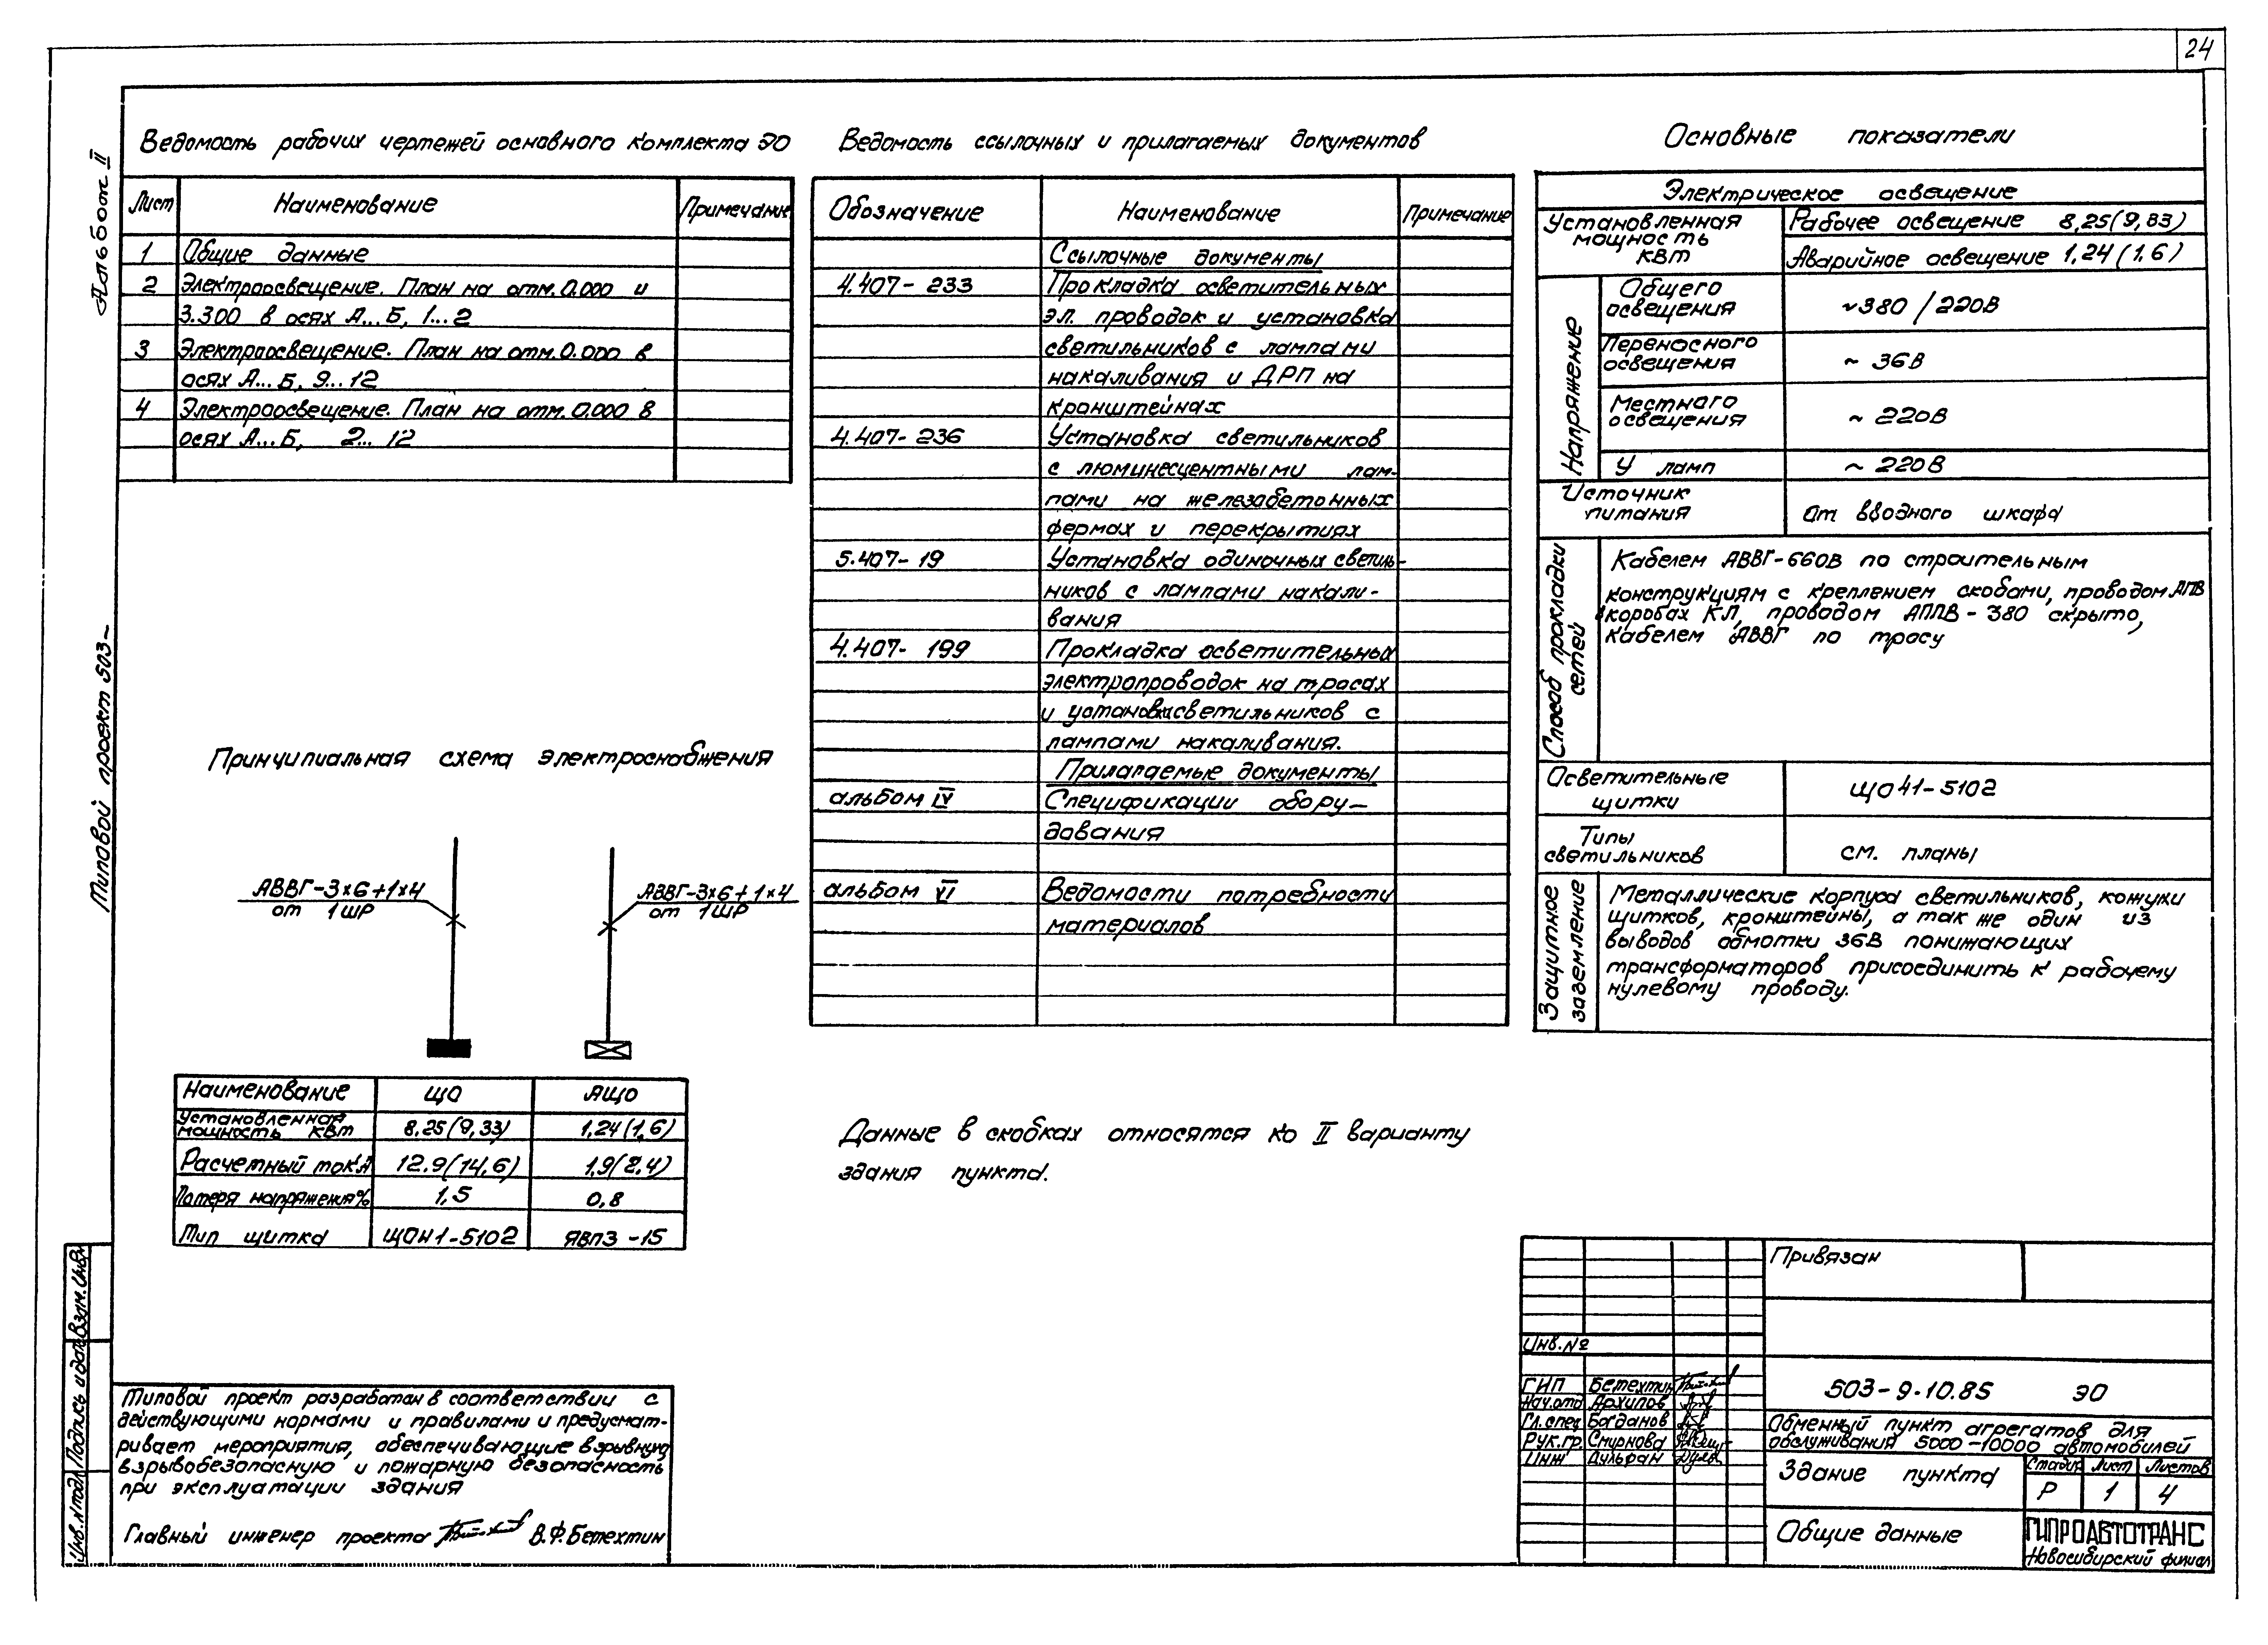 24
Альбом II
Типовой проект 503-
Ведомость рабочих чертежей основного комплекта ЭО
Лист Наименование Примечание
1 Общие данные
2 Электроосвещение. План на отм. 0.000 и
3.300 в осях А...Б, 1...2
3 Электроосвещение. План на отм. 0.000 в
осях А...Б, 9...12
4 Электроосвещение. План на отм. 0.000 в
осях А...Б, 2... 12
Ведомость ссылочных и прилагаемых документов
Обозначение Наименование Примечание
Ссылочные документы
4.407-233 Прокладка осветительных
эл. проводок и установка
светильников с лампами
накаливания и ДРП на
кронштейнах
4.407-236 Установка светильников
с люминесцентными лам-
пами на железабетонных
фермах и перекрытиях
5.407-19 Установка одиночных светиль-
ников с лампами накали-
вания
4.407-199 Прокладка осветительных
электропроводок на тросах
и установка светильников с
лампами накаливания.
Прилагаемые документы
альбом IV Спецификации обору-
дования
альбом VI Ведомости потребности
материалов
Основные показатели
Электрическое освещение
Установленная мощность квт
Рабочее освещение 8,25(9,83)
Аварийное освещение 1,24(1,6)
Напряжение
Общего освещения ~380/220В
Переносного освещения ~ 36В
Местного освещения ~ 220В
У ламп ~ 220В
Источник питания От вводного шкафа
Способ прокладки сетей
Кабелем АВВГ-660В по строительным
конструкциям с креплением скобами, проводом АПВ
в коробах КЛ, проводом АППВ-380 скрыто,
кабелем АВВГ по тросу
Осветительные щитки ЩО41-5102
Типы светильников см. планы
Защитное заземление
Металлические корпуса светильников, кожухи
щитков, кронштейны, а так же один из
выводов обмотки 36В понижающих
трансформаторов присоединить к рабочему
нулевому проводу.
Принципиальная схема электроснабжения
АВВГ-3х6+1х4
от 1ШР
АВВГ-3х6+1х4
от 1ШР
Наименование ЩО АЩО
Установленная мощность квт 8,25(9,33) 1,24(1,6)
Расчетный ток А 12.9(14,6) 1,9(2,4)
Потеря напряжения% 1,5 0,8
Тип щитка ЩОН1-5102 ЯВПЗ-15
Данные в скобках относятся ко II варианту
здания пункта.
Типовой проект разработан в соответствии с
действующими нормами и правилами и предусмат-
ривает мероприятия, обеспечивающие взрывную,
взрывобезопасную и пожарную безопасность
при эксплуатации здания
Главный инженер проекта В.Ф.Бетехтин
Взам.инв.№
Подпись и дата
Инв.№подл
Привязан
Инв.№
ГИП Бетехтин
Нач.отд Архипов
Гл.спец Богданов
Рук.гр. Смирнова
Инж Дульфан
503-9-10.85 ЭО
Обменный пункт агрегатов для
обслуживания 5000-10000 автомобилей
Здание пункта
Стадия Лист Листов
Р 1 4
Общие данные
ГИПРОАВТОТРАНС
Новосибирский филиал